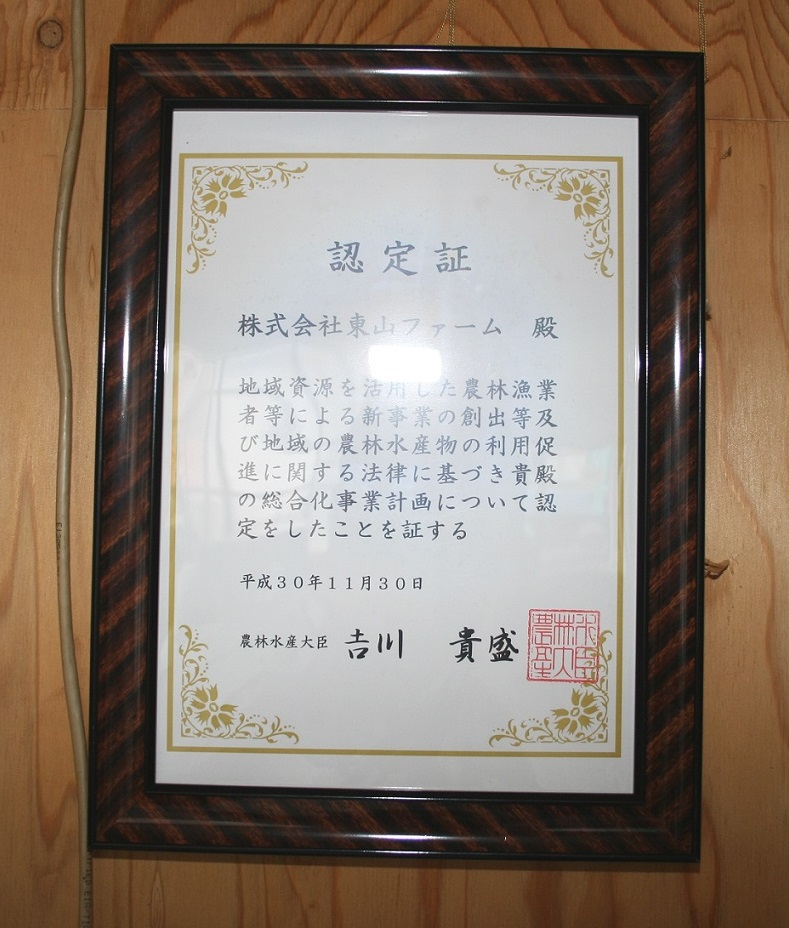 認定証
株式会社東山ファーム 殿
地域資源を活用した農林漁業
者等による新事業の創出等及
び地域の農林水産物の利用促
進に関する法律に基づき貴殿
の総合化事業計画について認
定をしたことを証する
平成30年11月30日
農林水産大臣 吉川 貴盛